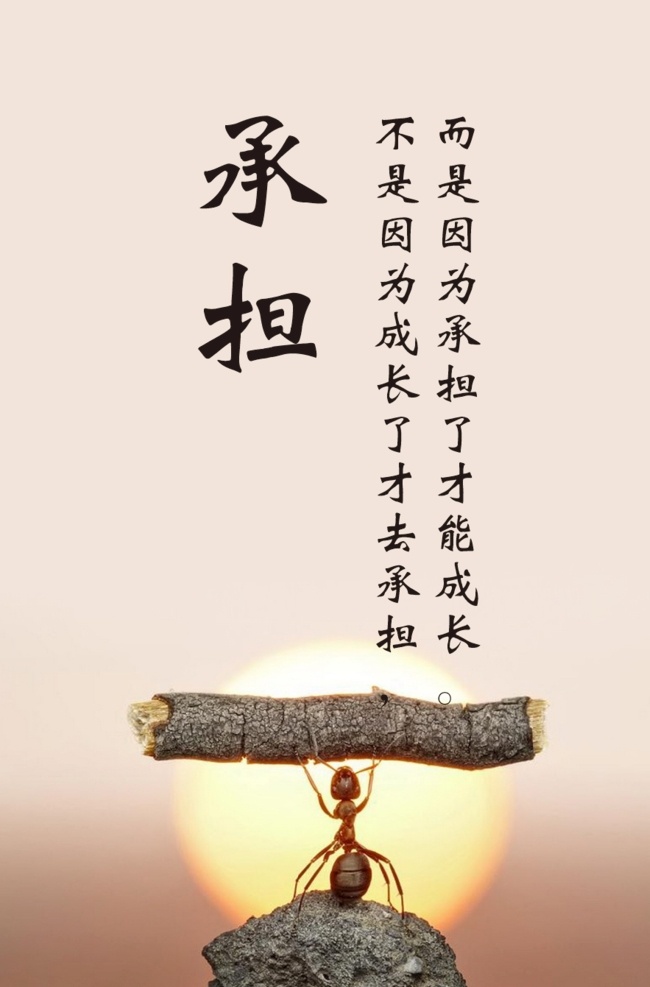 承担
不是因为成长了才去承担，
而是因为承担了才能成长。